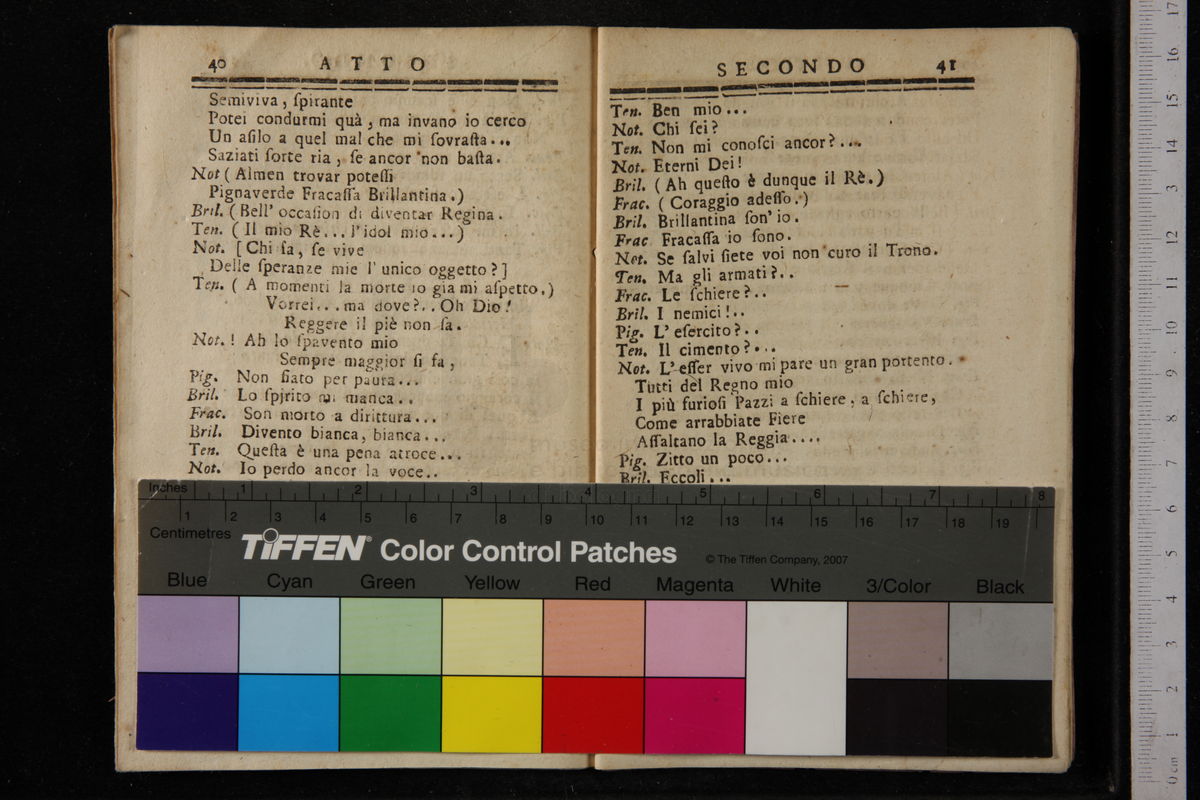 40 ATTO
Semiviva, ſpirante
Potei condurmi quà, ma invano io cerco
Un aſilo a quel mal che mi ſovraſta...
Saziati ſorte ria, ſe ancor non baſta.
Not (Almen trovar poteſſi
Pignaverde Fracaſſa Brillantina.)
Bril. (Bell' occaſion di diventar Regina.
Ten. (Il mio Rè... l'idol mio...)
Not. [Chi ſa, ſe vive
Delle ſperanze mie l' unico oggetto?]
Ten. (A momenti la morte io gia mi aſpetto.)
Vorrei... ma dove?.. Oh Dio!
Reggere il piè non ſa.
Not.! Ah lo ſpavento mio
Sempre maggior ſi fa,
Pig. Non fiato per paura...
Bril. Lo ſpirito mi manca..
Frac. Son morto a dirittura...
Bril. Divento bianca, bianca...
Ten. Queſta è una pena atroce...
Not. Io perdo ancor la voce..
SECONDO 41
Ten. Ben mio...
Not. Chi ſei?
Ten. Non mi conoſci ancor?...
Not. Eterni Dei!
Bril. (Ah queſto è dunque il Rè.)
Frac. (Coraggio adeſſo.)
Bril. Brillantina ſon' io.
Frac Fracaſſa io ſono.
Not. Se ſalvi ſiete voi non curo il Trono.
Ten. Ma gli armati?..
Frac. Le ſchiere?..
Bril. I nemici!..
Pig. L' eſercito?..
Ten. Il cimento?...
Not. L' eſſer vivo mi pare un gran portento.
Tutti del Regno mio
I più furioſi Pazzi a ſchiere, a ſchiere,
Come arrabbiate Fiere
Aſſaltano la Reggia....
Pig. Zitto un poco...
Bril. Eccoli...
Inches 1 2 3 4 5 6 7 8
1 2 3 4 5 6 7 8 9 10 11 12 13 14 15 16 17 18 19
Centimetres
TIFFEN® Color Control Patches © The Tiffen Company, 2007
Blue Cyan Green Yellow Red Magenta White 3/Color Black
0 cm 1 2 3 4 5 6 7 8 9 10 11 12 13 14 15 16 17